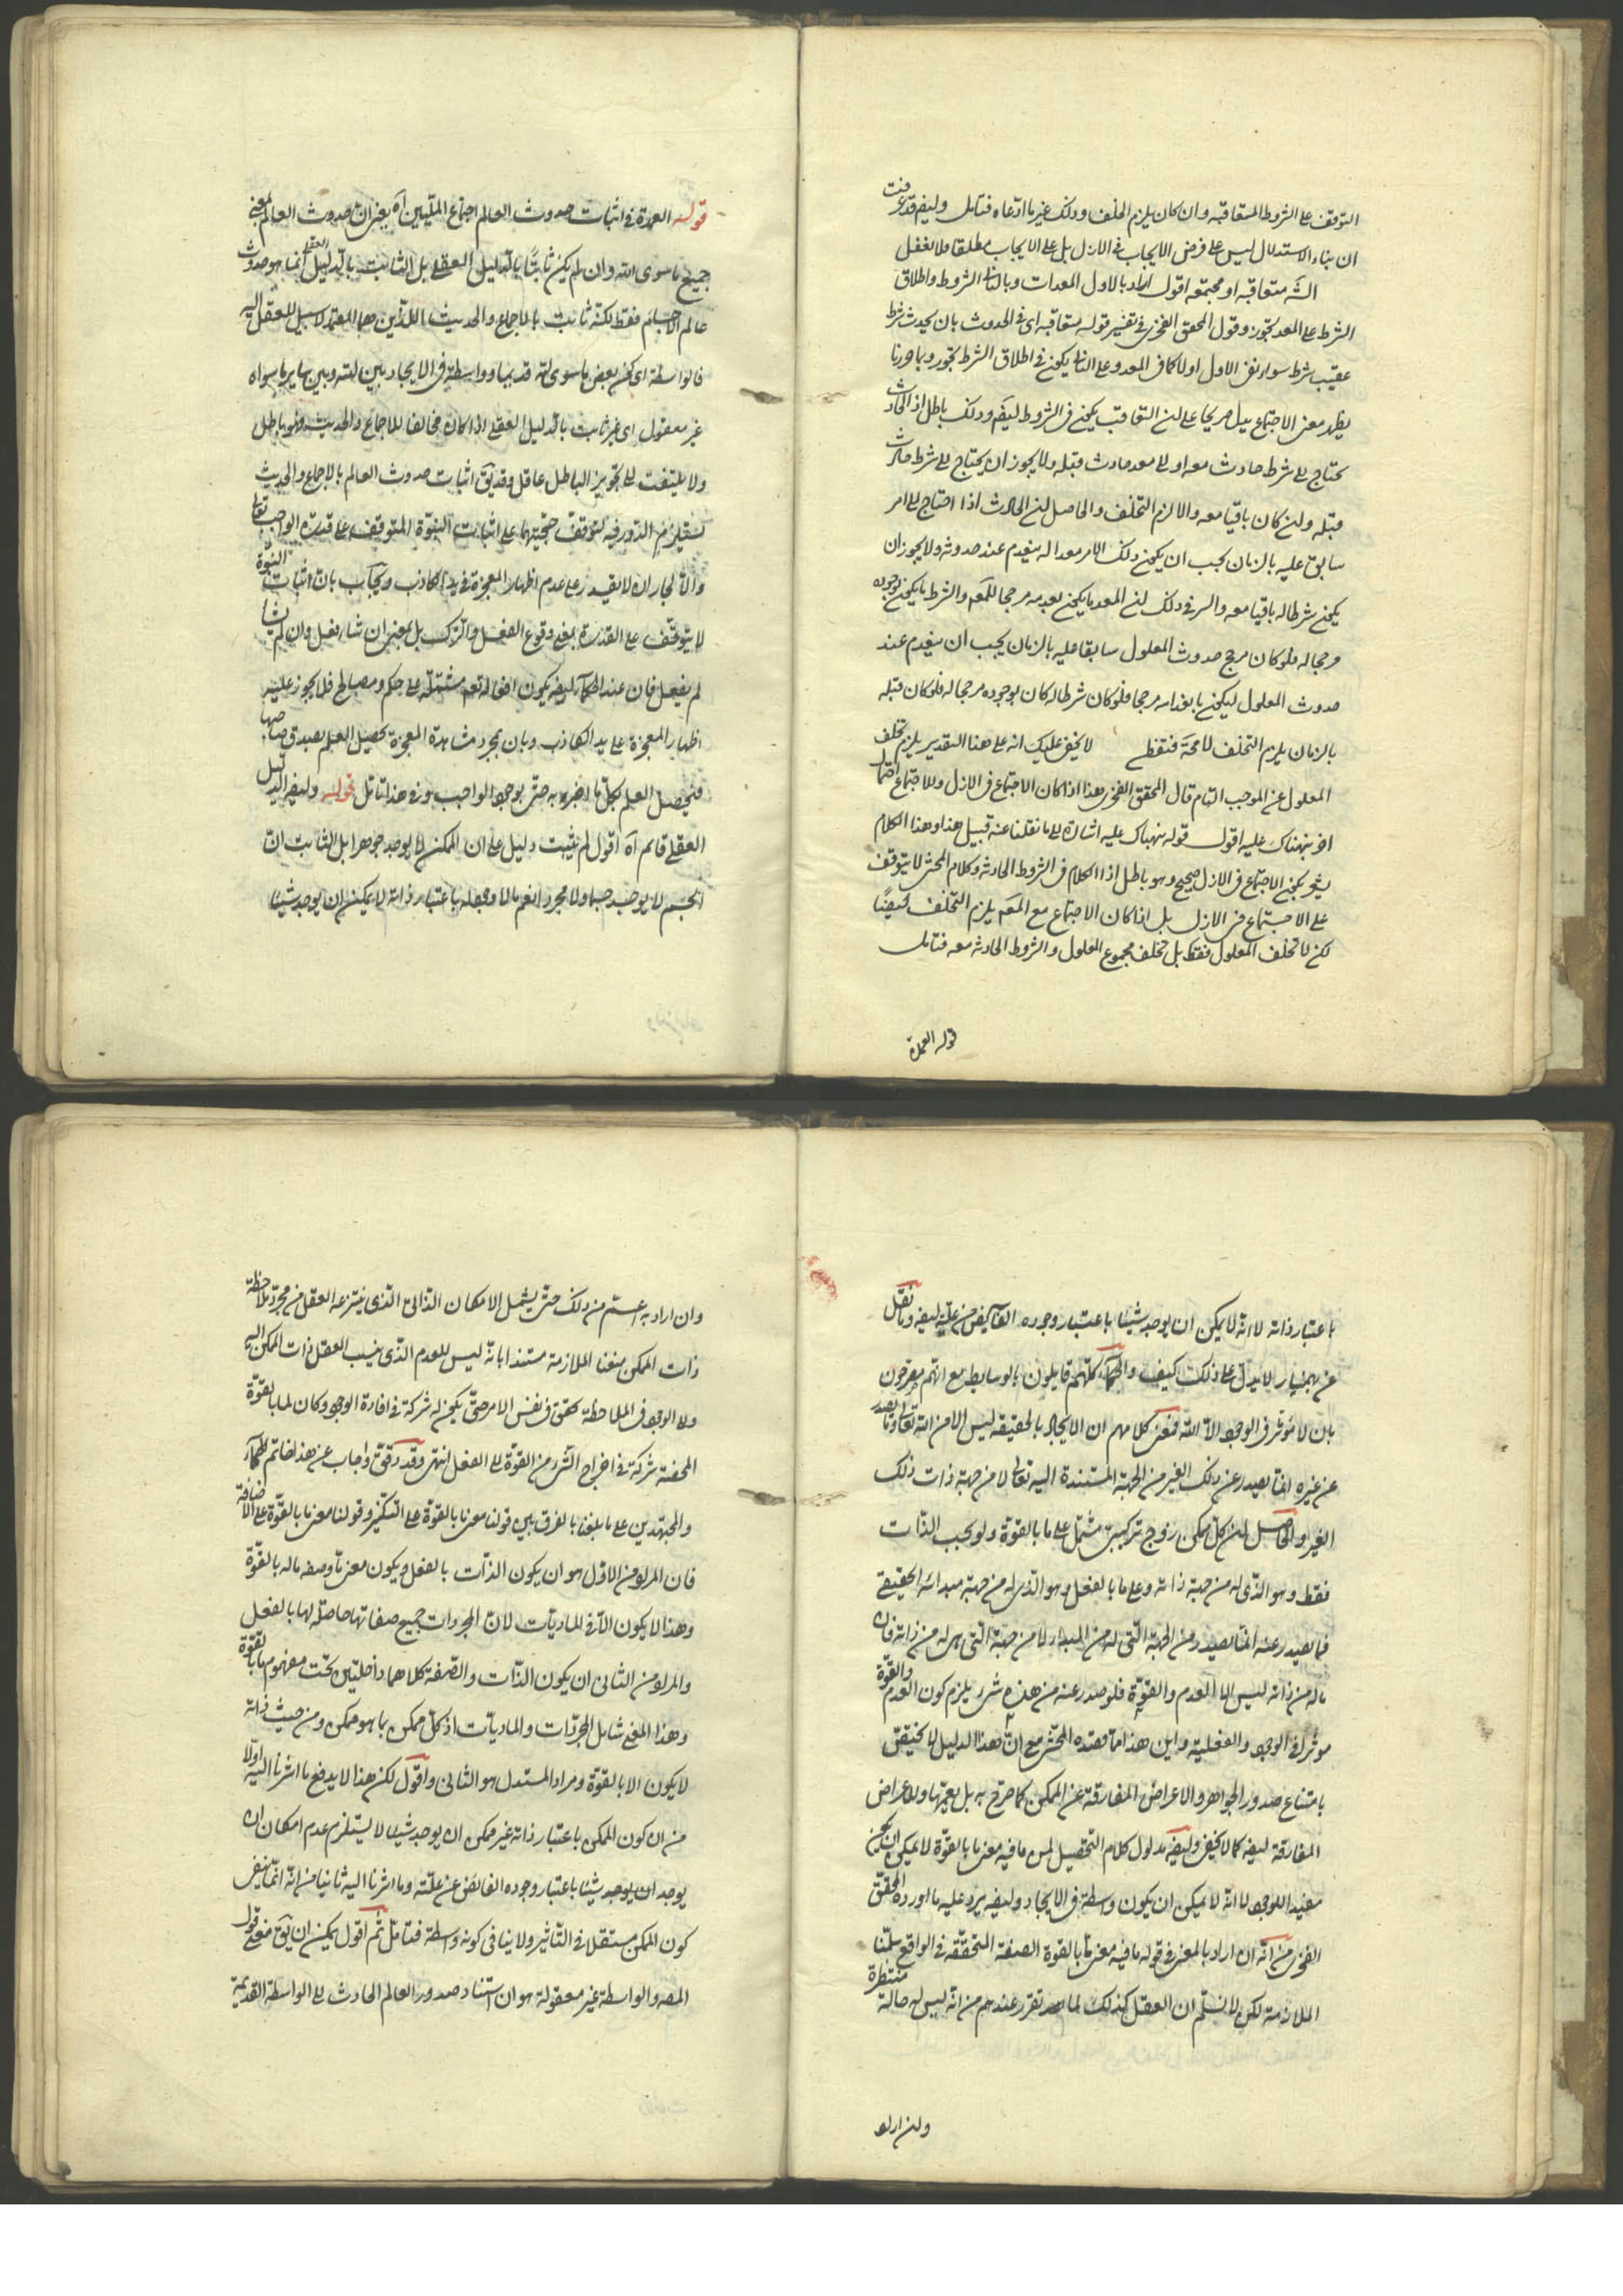 التوقف على الشروط المتعاقبة وان كان يلزم الخلف وذلك غير ما ادعاه فتامل وايضا قد عرفت
ان بناء الاستدلال ليس على فرض الايجاب في الازل بل على الايجاب مطلقا فلا تغفل
متعاقبة او مجتمعة اقول اراد بالاول المعدات وبالثاني الشروط واطلاق
الشرط على المعد تجوز وقول المحقق الفخري في تفسير قوله متعاقبة اى في الحدوث بان يحدث شرط
عقيب شرط سواء نفى الاول اولا كما في المعد وعلى الثاني يكون في اطلاق الشرط تجوز وبما حررنا
يظهر معنى الاجتماع يدل صريحا على ان التعاقب يكون في الشروط ايضا وذلك باطل اذ الحادث
يحتاج الى شرط حادث معه او الى معد حادث قبله ولا يجوز ان يحتاج الى شرط حادث
قبله وان كان باقيا معه والا لزم التخلف والحاصل ان الحادث اذا احتاج الى امر
سابق عليه بالزمان يجب ان يكون ذلك الامر معدا له ينعدم عند حدوثه ولا يجوز ان
يكون شرطا له باقيا معه والسر في ذلك ان المعد ما يكون بعدمه مرجحا للمعلول والشرط ما يكون بوجوده
مرجحا له فلو كان مرجح حدوث المعلول سابقا عليه بالزمان يجب ان ينعدم عند
حدوث المعلول ليكون بانعدامه مرجحا فلو كان شرطا له كان بوجوده مرجحا له فلو كان قبله
بالزمان يلزم التخلف لا محالة فتفطن لا يخفى عليك انه على هذا التقدير يلزم تخلف
المعلول عن الموجب التام قال المحقق الفخري هذا اذا كان الاجتماع في الازل وللاجتماع احتمال
اخر ننبهناك عليه اقول قوله ننبهناك عليه اشارة الى ما نقلنا عنه قبيل هذا وهذا الكلام
يكون الاجتماع في الازل صحيح وهو باطل اذ الكلام في الشروط الحادثة وكلام المحشى لا يتوقف
على الاجتماع في الازل بل اذا كان الاجتماع مع المعلول يلزم التخلف ايضا
لكن لا تخلف المعلول فقط بل تخلف مجموع المعلول والشروط الحادثة معه فتامل
قوله العمدة
قوله العمدة في اثبات حدوث العالم اجتماع المليين آه يعنى ان حدوث العالم بمعنى
جميع ما سوى الله وان لم يكن ثابتا بالدليل العقلي بل الثابت بالدليل العقلي انما هو حدوث
عالم الاجسام فقط لكنه ثابت بالاجماع والحديث اللذين هما المعتمد لا سبيل للعقل اليه
فالواسطة اى كون بعض ما سوى الله قديما وواسطة في الايجاد بين الله وبين ساير ما سواه
غير معقول اى غير ثابت بالدليل العقلي اذا كان مخالفا للاجماع والحديث فهو باطل
ولا يلتفت الى تجويز الباطل عاقل وقد يق اثبات حدوث العالم بالاجماع والحديث
يستلزم الدور فيه لتوقف حجيتهما على اثبات النبوة المتوقف على قدرة الواجب تعالى
والا لجاز ان لا يقدر على عدم اظهار المعجزة في يد الكاذب ويجاب بان اثبات النبوة
لا يتوقف على القدرة بمعنى وقوع الفعل والترك بل بمعنى ان شاء فعل وان لم يشأ
لم يفعل فان عند الحكماء ايضا يكون افعاله تعالى مشتملة على حكم ومصالح فلا يجوز عليه
اظهار المعجزة على يد الكاذب وبان بمجرد مشاهدة المعجزة يحصل العلم بصدق صاحبها
فيحصل العلم بكل ما اخبر به حتى بوجود الواجب وفي هذا تامل قوله وايضا الدليل
العقلي قائم آه اقول لم يثبت دليل على ان الممكن لا يوجد جوهرا بل الثابت ان
الجسم لا يوجد جسما ولا مجردا نعم باعتبار ذاته لا يمكن ان يوجد شيئا
باعتبار ذاته لا انه لا يمكن ان يوجد شيئا باعتبار وجوده الفائض عن علته ايضا وما نقل
عن بهمنيار لا يدل على ذلك كيف والحكماء كلهم قايلون بالوسايط مع انهم مصرحون
بان لا مؤثر في الوجود الا الله فمعنى كلامهم ان الايجاد بالحقيقة ليس الا من الله تعالى وما يصدر
عن غيره انما يصدر عن ذلك الغير من الجهة المستندة اليه تعالى لا من جهة ذات ذلك
الغير والحاصل ان كل ممكن زوج تركيبي مشتمل على ما بالقوة ولو بحسب الذات
فقط وهو الذى له من جهة ذاته وعلى ما بالفعل وهو الذى له من جهة مبدائه الحقيقي
فما يصدر عنه انما يصدر من الجهة التي له من المبدا لا من جهة التي هى له من ذاته فان
ما له من ذاته ليس الا العدم والقوة فلو صدر عنه من هذه شئ يلزم كون العدم والقوة
مؤثرا في الوجود والفعلية واين هذا مما قصده المحشى مع ان هذا الدليل لا يختص
بامتناع صدور الجواهر والاعراض المفارقة عن الممكن كما صرح به بل يعمها والاعراض
المفارقة ايضا كما لا يخفى وايضا مدلول كلام التحصيل ليس ما فيه معنى ما بالقوة لا يمكن ان يكون
مفيد الوجود لا انه لا يمكن ان يكون واسطة في الايجاد وايضا يرد عليه ما اورده المحقق
الفخري من انه ان اراد بالمعنى في قوله ما فيه معنى ما بالقوة الصفة المتحققة في الواقع سلمنا
الملازمة لكن لا نسلم ان العقل كذلك لما تقرر عندهم من انه ليس له حالة منتظرة
وان اراد
وان اراد به اعم من ذلك حتى يشمل الامكان الذاتي الذي ينتزعه العقل من مجرد ملاحظة
ذات الممكن منعنا الملازمة مستندا بانه ليس للعدم الذى ينسب العقل ذات الممكن اليه
ولا الوجود في الملاحظة تحقق في نفس الامر حتى يكون له شركة في افادة الوجود وكان لما بالقوة
المحضة شركة في اخراج الشئ من القوة الى الفعل انتهى وقد دقق واجاب عن هذا خاتم الحكماء
والمجتهدين على ما بلغنا بالفرق بين قولنا معنى ما بالقوة على التنكير وقولنا معنى ما بالقوة على الاضافة
فان المراد من الاول هو ان يكون الذات بالفعل ويكون معنى ما وصفة ما له بالقوة
وهذا لا يكون الا في الماديات لان المجردات جميع صفاتها حاصلة لها بالفعل
والمراد من الثاني ان يكون الذات والصفة كلاهما داخلتين تحت مفهوم ما بالقوة
وهذا المعنى شامل المجردات والماديات اذ كل ممكن بما هو ممكن ومن حيث ذاته
لا يكون الا بالقوة ومراد المستدل هو الثاني واقول لكن هذا لا يدفع ما اشرنا اليه اولا
من ان كون الممكن باعتبار ذاته غير ممكن ان يوجد شيئا لا يستلزم عدم امكان ان
يوجد ان يوجد شيئا باعتبار وجوده الفائض عن علته وما اشرنا اليه ثانيا من انه انما ينفى
كون الممكن مستقلا في التاثير ولا ينافي كونه واسطة فتامل ثم اقول يمكن ان يق معنى قول
المصه والواسطة غير معقولة هو ان استناد صدور العالم الحادث الى الواسطة القديمة